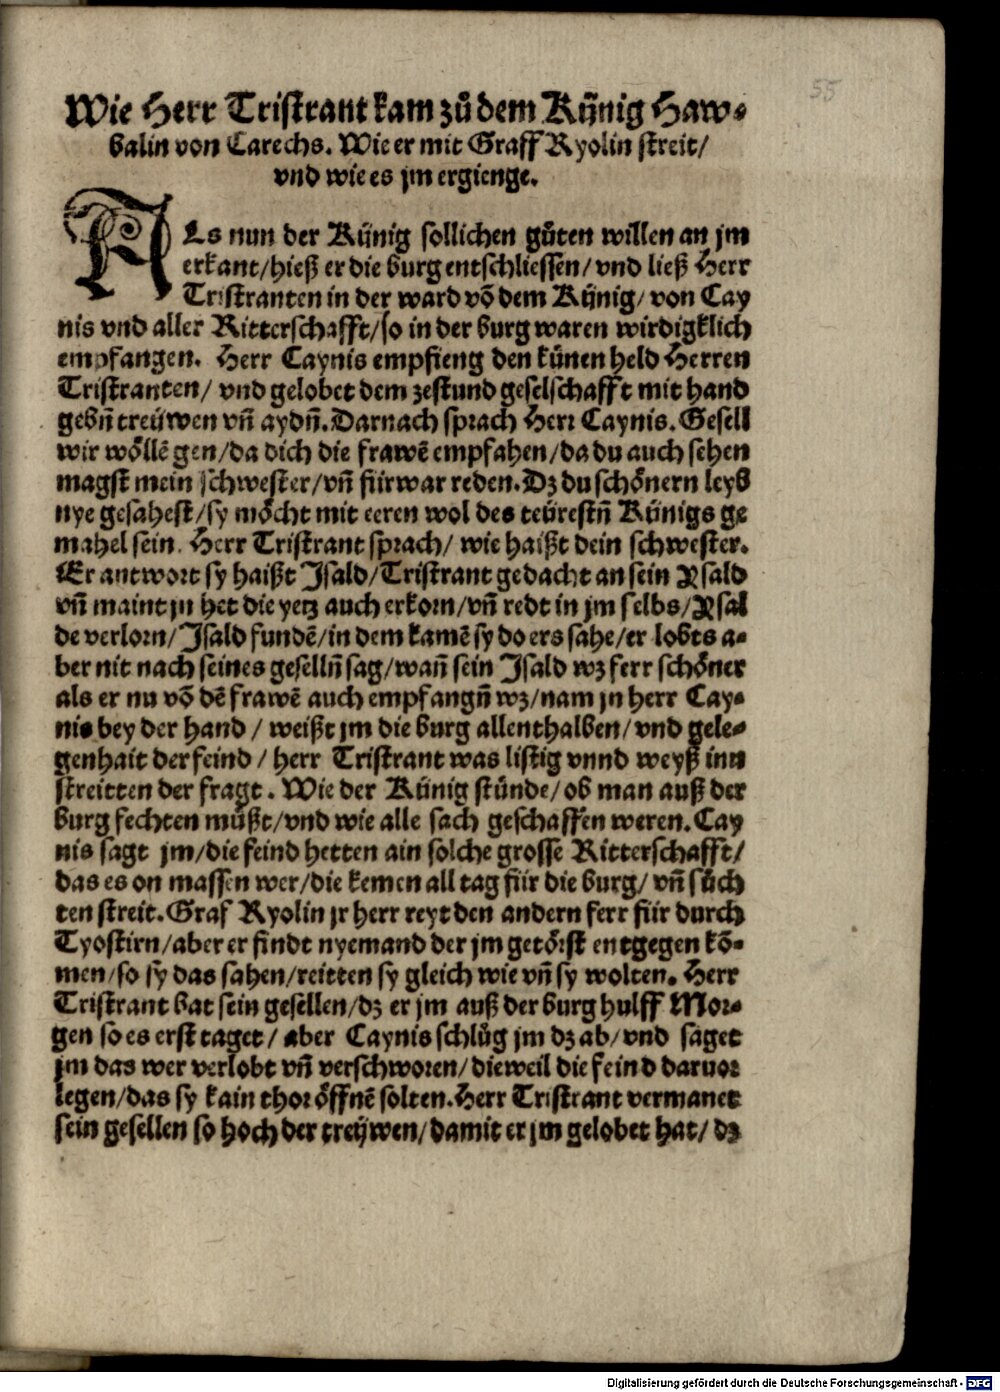 55
Wie Herr Tristrant kam zů dem Kŷnig Haw-
balin von Carechs. Wie er mit Graff Ryolin streit/
vnd wie es jm ergienge.
ALs nun der Künig sollichen gůten willen an jm
erkant/hieß er die burg entschliessen/vnd ließ Herr
Tristranten in der ward võ dem Kŷnig/ von Cay
nis vnd aller Ritterschafft/so in der burg waren wirdigklich
empfangen. Herr Caynis empfieng den künen held Herren
Tristranten/ vnd gelobet dem zestund geselschafft mit hand
gebn̄ treüwen vn̄ aydn̄. Darnach sprach Herr Caynis. Gesell
wir wöllē gen/da dich die frawē empfahen/da du auch sehen
magst mein schwester/vn̄ fürwar reden. Dz du schönern leyb
nye gesahest/sy möcht mit eeren wol des teürestn̄ Künigs ge
mahel sein. Herr Tristrant sprach/ wie haißt dein schwester.
Er antwort sy haißt Isald/Tristrant gedacht an sein Ysald
vn̄ maint jn het die yetz auch erkorn/vn̄ redt in jm selbs/Ysal
de verlorn/Isald fundē/in dem kamē sy do ers sahe/er lobts a-
ber nit nach seines geselln̄ sag/wan̄ sein Isald wz ferr schöner
als er nu võ dē frawē auch empfangn̄ wz/nam jn herr Cay-
nis bey der hand/ weißt jm die burg allenthalben/vnd gele-
genhait der feind/ herr Tristrant was listig vnnd weyß inn
streitten der fragt. Wie der Künig stünde/ob man auß der
burg fechten müßt/vnd wie alle sach geschaffen weren. Cay
nis sagt jm/die feind hetten ain solche grosse Ritterschafft/
das es on massen wer/die kemen all tag für die burg/ vn̄ sůch
ten streit. Graf Ryolin jr herr reyt den andern ferr für durch
Tyostirn/aber er findt nyemand der jm getörst entgegen kō-
men/so sy das sahen/reitten sy gleich wie vn̄ sy wolten. Herr
Tristrant bat sein gesellen/dz er jm auß der burg hulff Mor-
gen so es erst taget/ aber Caynis schlůg jm dz ab/vnd saget
jm das wer verlobt vn̄ verschworen/dieweil die feind daruor
legen/das sy kain thor öffnē solten. Herr Tristrant vermanet
sein gesellen so hoch der treŷwen/damit er jm gelobet hat/ dz
Digitalisierung gefördert durch die Deutsche Forschungsgemeinschaft - DFG